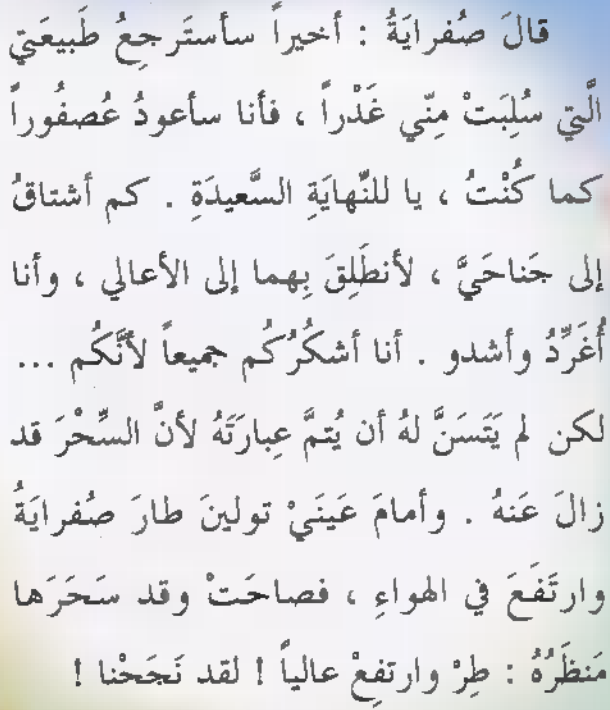 قالَ صُفرايَةُ : أخيراً سأستَرجعُ طَبيعَتي
الَّتي سُلِبَتْ مِنّي غَدْراً ، فأنا سأعودُ عُصفُوراً
كما كُنْتُ ، يا للنِّهايَةِ السَّعيدَةِ . كم أشتاقُ
إلى جَناحَيَّ ، لأنطَلِقَ بِهما إلى الأعالي ، وأنا
أُغَرِّدُ وأشدو . أنا أشكُرُكُم جميعاً لأنَّكُم ...
لكن لم يَتَسَنَّ لهُ أن يُتمَّ عِبارَتَهُ لأنَّ السِّحْرَ قد
زالَ عَنهُ . وأمامَ عَينَيْ تولينَ طارَ صُفرايَةُ
وارتَفَعَ في الهواءِ ، فصاحَتْ وقد سَحَرَها
مَنظَرُهُ : طِرْ وارتفِعْ عالياً ! لقد نَجَحْنا !